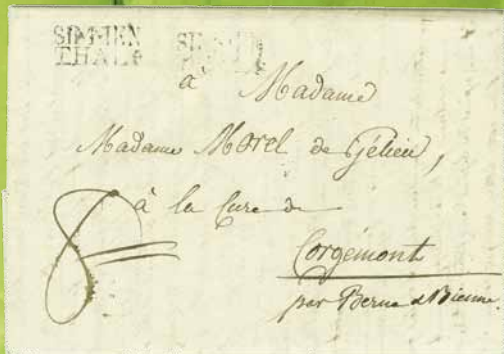 à Madame
Madame Morel de Gélieu,
à la Cure de
Corgémont
par Berne et Bienne.
8